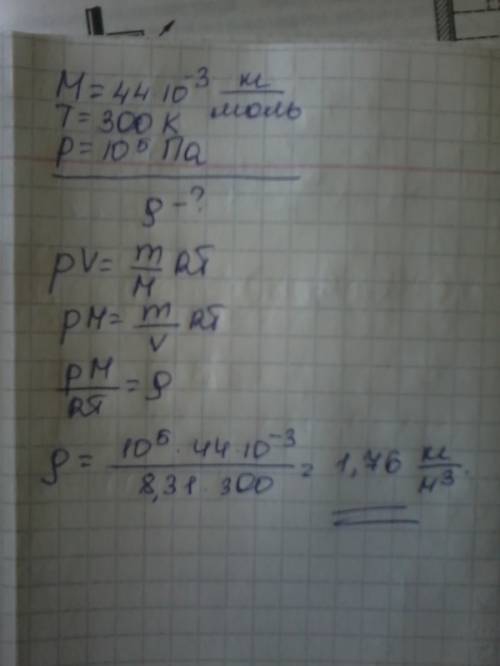 M = 44 10⁻³ кг/моль
T = 300 К
P = 10⁵ Па
ρ - ?
pV = m/M RT
pM = m/V RT
pM/RT = ρ
ρ = 10⁵ · 44 · 10⁻³ / 8,31 · 300 = 1,76 кг/м³.